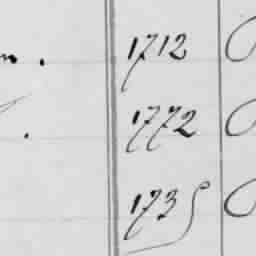 1712
1772
1735